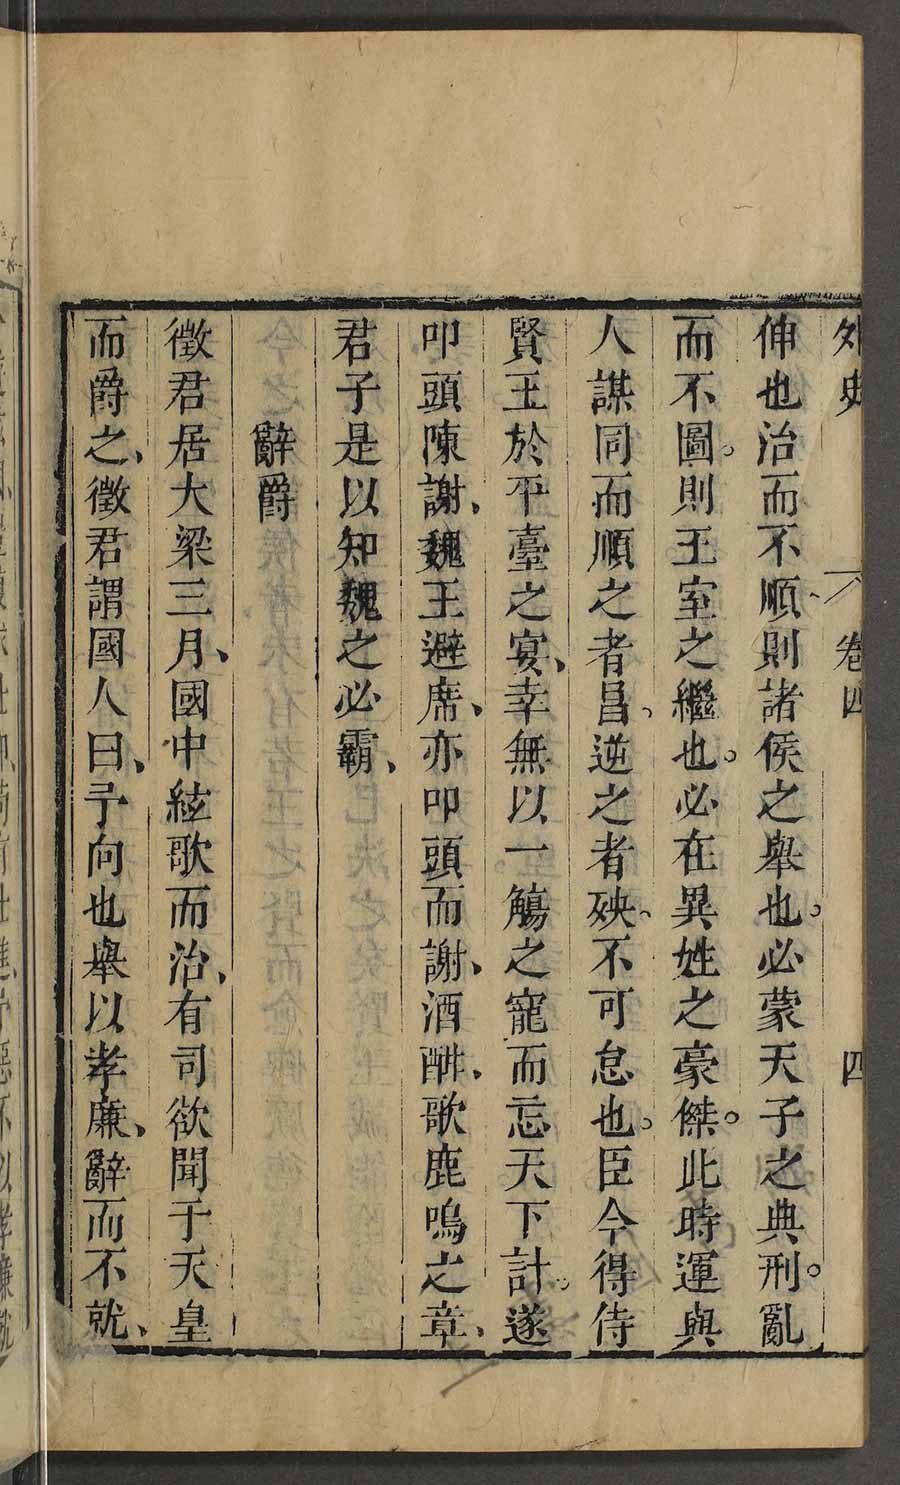 外史 卷四 四
伸也治而不順則諸侯之舉也。必蒙天子之典刑。亂
而不圖。則王室之繼也。必在異姓之豪傑。此時運與
人謀同而順之者昌、逆之者殃、不可怠也。臣今得侍
賢王於平臺之宴、幸無以一觴之寵而忘天下計。遂
叩頭陳謝、魏王避席、亦叩頭而謝、酒酣、歌鹿鳴之章、
君子是以知魏之必霸、
辭爵
徵君居大梁三月、國中絃歌而治、有司欲聞于天皇
而爵之、徵君謂國人曰、予向也舉以孝廉、辭而不就、